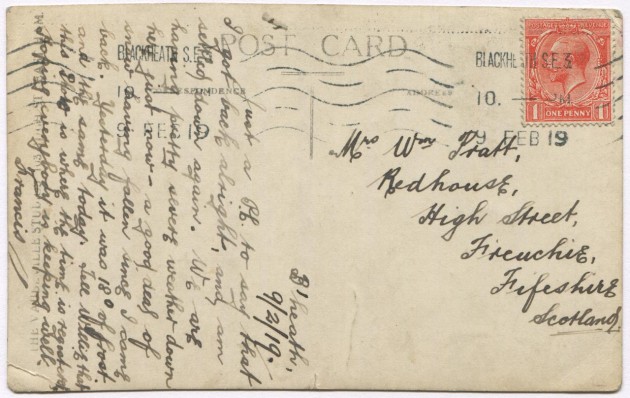 POST CARD
CORRESPONDENCE
ADDRESS
BLACKHEATH S.E.
10.
9 FEB 19
BLACKHEATH S.E.3
10. PM
9 FEB 19
POSTAGE REVENUE
ONE PENNY
1 1
Mrs Wm Pratt,
Redhouse,
High Street,
Freuchie,
Fifeshire
Scotland.
B'heath,
9/2/19.
Just a P.C. to say that
I got back alright, and am
settled down again. We are
having pretty severe weather down
here just now – a good deal of
snow having fallen since I came
back. Yesterday it was 18° of frost
and the same today. Tell Willie that
this is where the time is registered
Hoping everybody is keeping well.
Francis